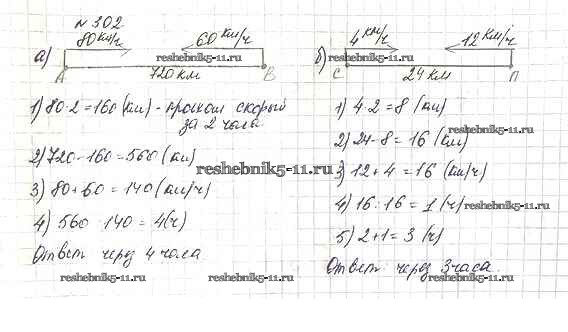 № 302
а) 80 км/ч 60 км/ч
А 720 км В
1) 80·2=160 (км) - проехал скорый
за 2 часа
2) 720-160=560 (км)
3) 80+60=140 (км/ч)
4) 560 140=4(ч)
Ответ через 4 часа
б) 4 км/ч 12 км/ч
С 24 км П
1) 4·2=8 (км)
2) 24-8=16 (км)
3) 12+4=16 (км/ч)
4) 16 16=1 (ч)
5) 2+1=3 (ч)
Ответ через 3 часа.
reshebnik5-11.ru
reshebnik5-11.ru
reshebnik5-11.ru
reshebnik5-11.ru
reshebnik5-11.ru
reshebnik5-11.ru
reshebnik5-11.ru